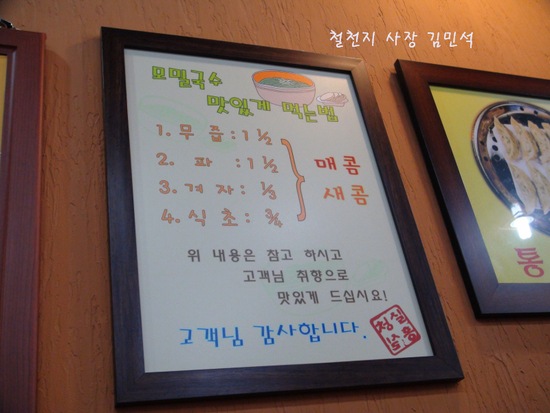 철천지 사장 김민석
모밀국수
맛있게 먹는법
1. 무 즙 : 1 ½
2. 파 : 1 ½
3. 겨 자 : ⅓
4. 식 초 : ¾
매콤
새콤
위 내용은 참고 하시고
고객님 취향으로
맛있게 드십시요!
고객님 감사합니다.
통